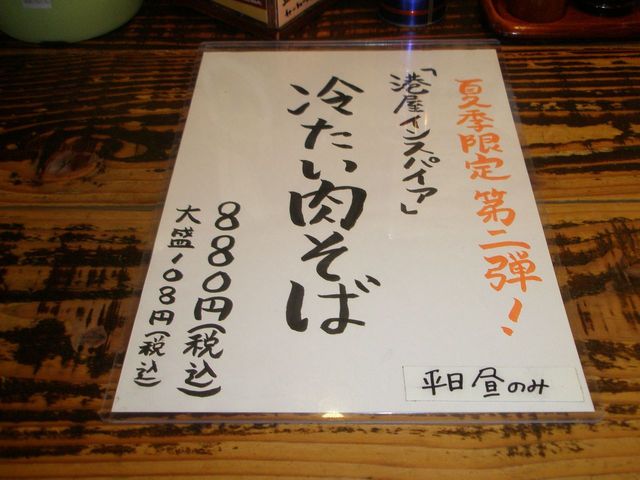 夏季限定 第二弾！
「港屋インスパイア」
冷たい肉そば
880円(税込)
大盛108円(税込)
平日昼のみ